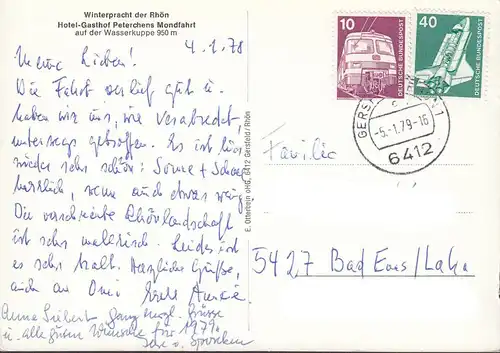 Winterpracht der Rhön
Hotel-Gasthof Peterchens Mondfahrt
auf der Wasserkuppe 950 m
4.1.78
Meine Lieben!
Die Fahrt verlief gut u.
haben wir uns, wie verabredet
unterwegs getroffen. Es ist hier
wieder sehr schön: Sonne + Schnee
herrlich, wenn auch etwas wenig
Die verschneite Rhönlandschaft
ist sehr malerisch. Leider ist
es sehr kalt. Herzliche Grüße,
auch an Omi Eure
Anna Siebert ganz herzl. Grüsse
u. alle guten Wünsche für 1979.
E. Otterbein oHG, 6412 Gersfeld / Rhön
10
DEUTSCHE BUNDESPOST
40
DEUTSCHE BUNDESPOST
GERSFELD
1
-5.-1.79-16
6412
Familie
5427 Bad Ems/Lahn